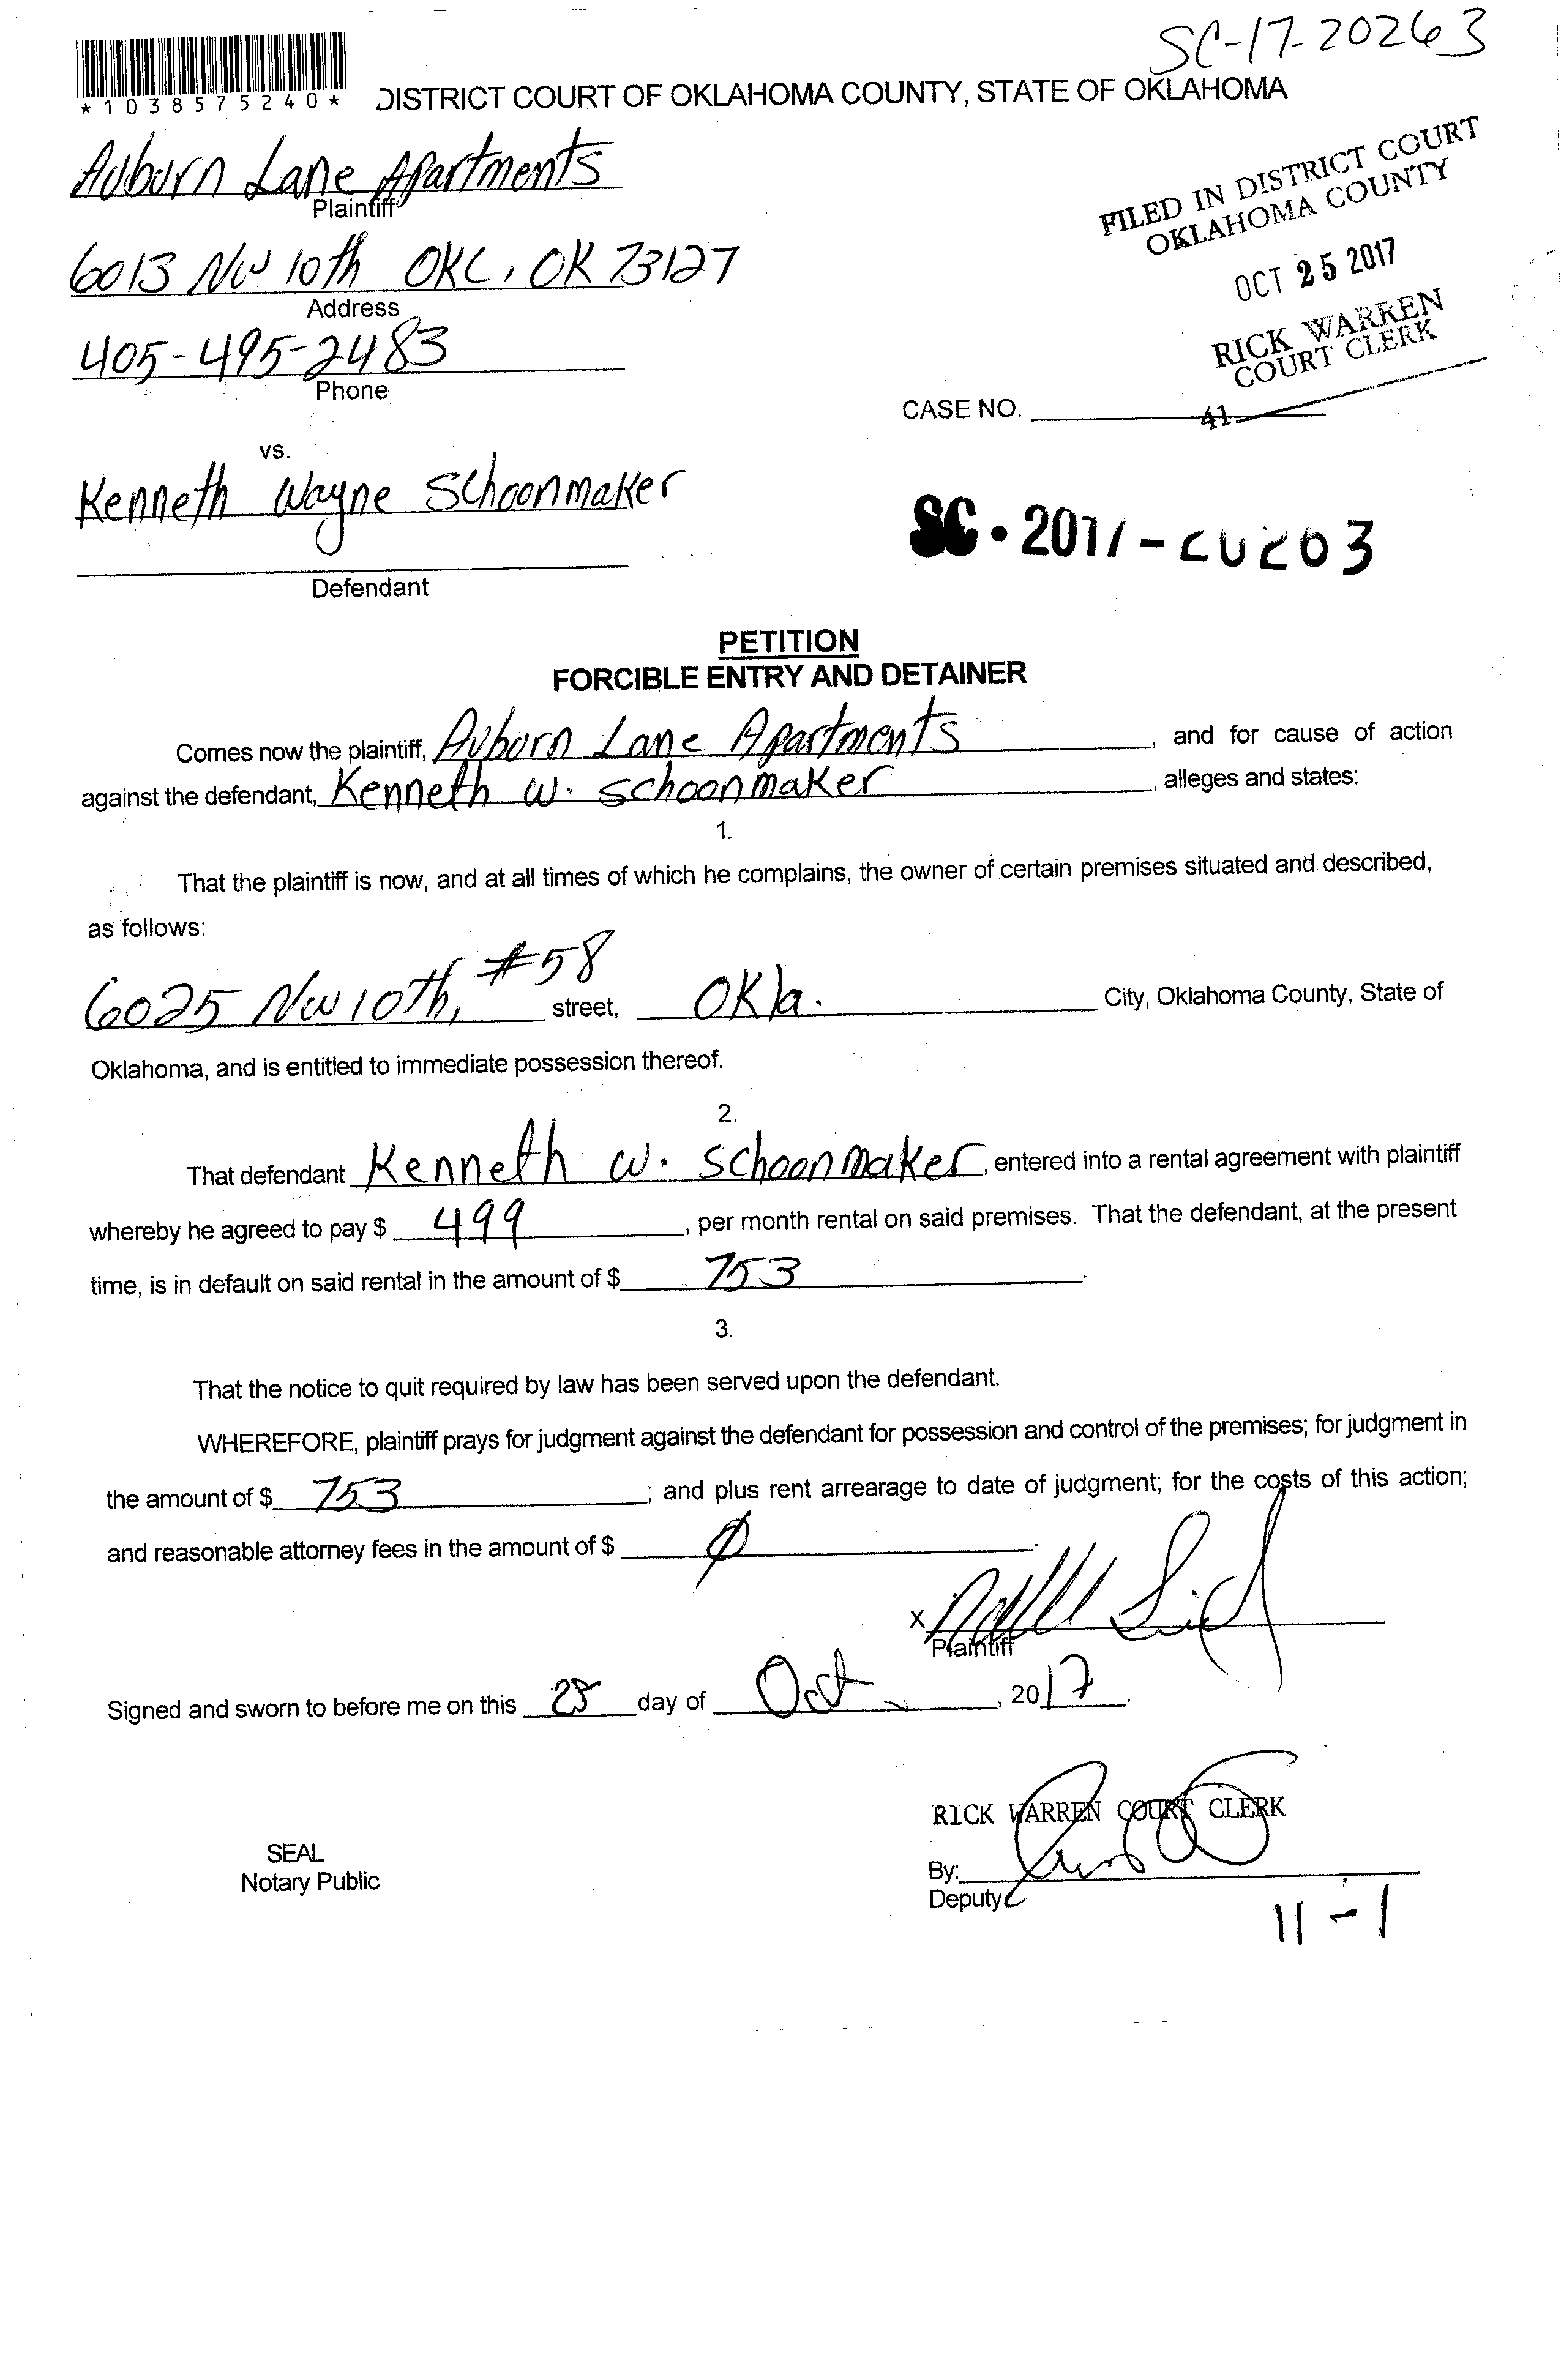 SC-17-20263
*1038575240*
DISTRICT COURT OF OKLAHOMA COUNTY, STATE OF OKLAHOMA
Auburn Lane Apartments
Plaintiff
FILED IN DISTRICT COURT
OKLAHOMA COUNTY
6013 NW 10th OKC, OK 73127
Address
OCT 25 2017
405-495-2483
Phone
RICK WARREN
COURT CLERK
CASE NO.
41
vs.
Kenneth Wayne Schoonmaker
Defendant
SC-2017-20263
PETITION
FORCIBLE ENTRY AND DETAINER
Comes now the plaintiff, Auburn Lane Apartments, and for cause of action
against the defendant, Kenneth W. Schoonmaker, alleges and states:
1.
That the plaintiff is now, and at all times of which he complains, the owner of certain premises situated and described,
as follows:
6025 NW 10th, #58 street, Okla. City, Oklahoma County, State of
Oklahoma, and is entitled to immediate possession thereof.
2.
That defendant Kenneth W. Schoonmaker, entered into a rental agreement with plaintiff
whereby he agreed to pay $ 499, per month rental on said premises. That the defendant, at the present
time, is in default on said rental in the amount of $ 753.
3.
That the notice to quit required by law has been served upon the defendant.
WHEREFORE, plaintiff prays for judgment against the defendant for possession and control of the premises; for judgment in
the amount of $ 753; and plus rent arrearage to date of judgment; for the costs of this action;
and reasonable attorney fees in the amount of $ Ø.
X
Plaintiff
Signed and sworn to before me on this 25 day of Oct, 2017.
RICK WARREN COURT CLERK
SEAL
Notary Public
By:
Deputy
11-1